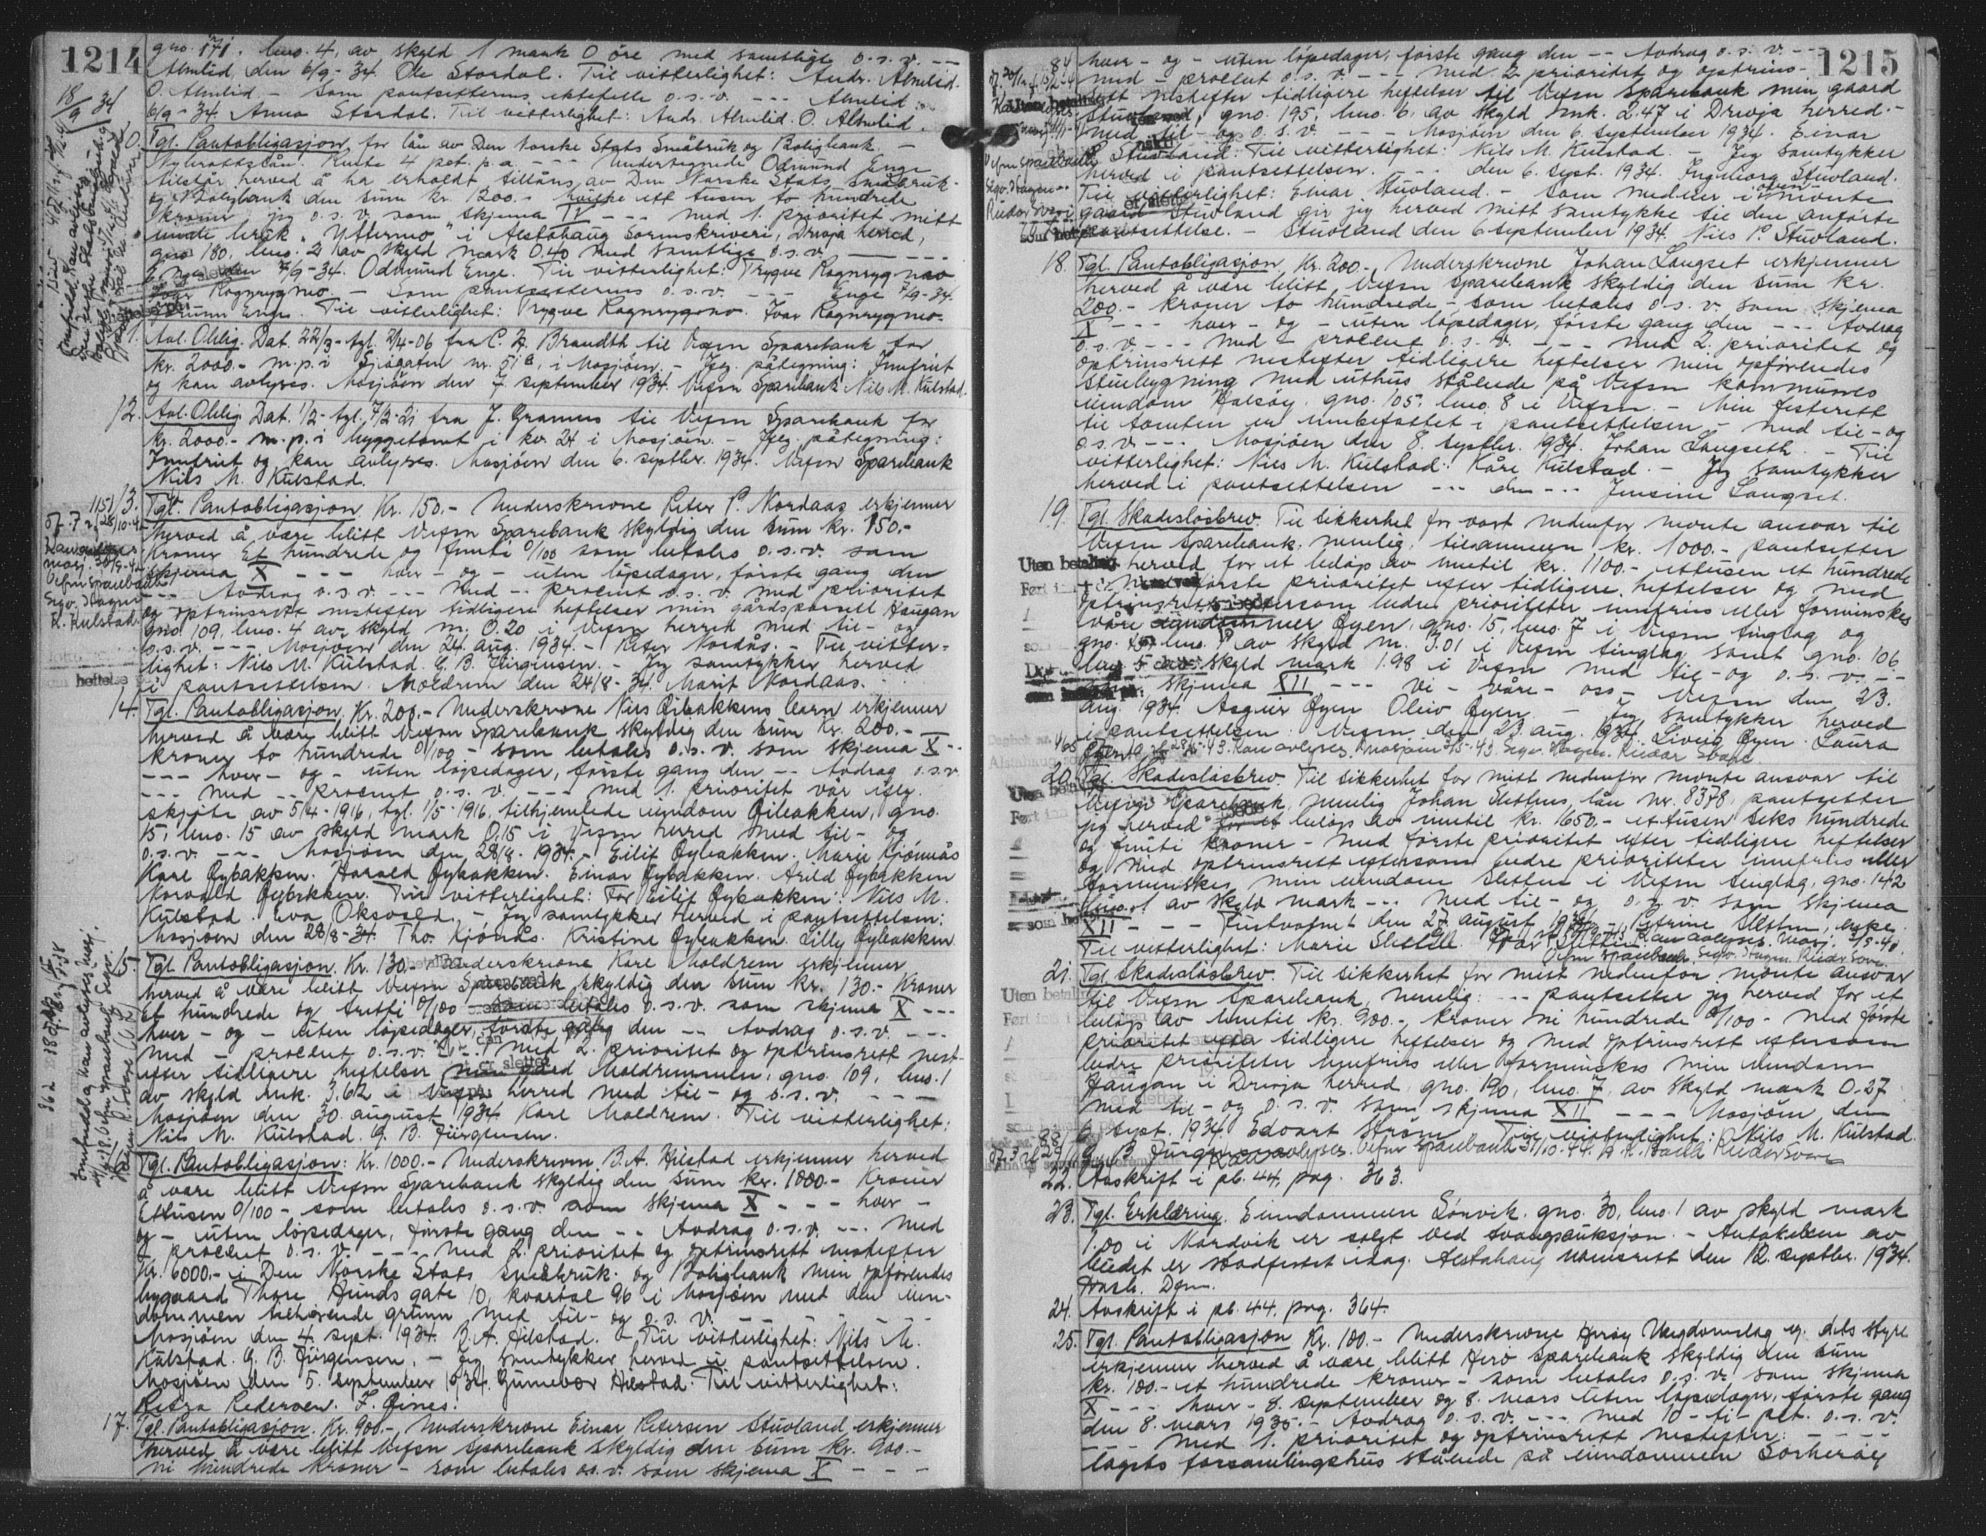 1214
gno. 171. bno. 4, av skyld 1 mark 0 öre med samtlige o.s.v. --
Almlid den 6/9-34. Ole Stordal. Til vitterlighet: Andr. Almlid.
O. Almlid. - Som pantsetterens ektefelle o.s.v. --- Almlid
6/9-34 Anna Stordal. Til vitterlighet: Andr. Almlid. O. Almlid.
18/9 34
Tgl. Pantobligasjon for lån av Den Norske Stats Småbruk og Boligbank. -
Nybrottslån. Rente 4 pct. p.a --- Undertegnede Odmund Enge
tilstår herved å ha erholdt tillåns av Den Norske Stats Småbruk-
og Boligbank den sum kr. 1200.- ett tusen to hundrede
kroner, jeg o.s.v. som skjema IV --- med 1. prioritet mitt
bruk "Ytternes" i Alstahaug Sorenskriveri, Drevja herred,
gno 180. bno. 2 av skyld mark 0.40 med samtlige o.s.v. ---
7/9-34. Odmund Enge. Til vitterlighet: Trygve Rognrygmo
Ivar Rognrygmo. - Som pantsetterens o.s.v. --- Enge 7/9-34.
Enge. Til vitterlighet: Trygve Rognrygmo. Ivar Rognrygmo.
11. Avl. Oblig. Dat. 22/3- tgl. 2/4-06 fra C. Z. Brandth til Vefsn Sparebank for
kr. 2000.- m.p.i Sjögaten nr. 51 B, i Mosjöen. - Jfg. påtegning: Innfriet
og kan avlyses. Mosjöen den 7. september 1934. Vefsn Sparebank Nils M. Kulstad.
12. Avl. Oblig. Dat. 1/2- tgl. 7/2-21 fra J. Granmo til Vefsn Sparebank for
kr. 2000.- m.p.i byggetomt i kv. 24 i Mosjöen. - Jfg. påtegning:
Innfriet og kan avlyses. Mosjöen den 6. septbr. 1934. Vefsn Sparebank
Nils M. Kulstad.
13. Tgl. Pantobligasjon. Kr. 150.- Underskrevne Peter P. Nordaas erkjenner
herved å være blitt Vefsn Sparebank skyldig den sum kr. 150.-
kroner Et hundrede og femti 0/100 som betales o.s.v. som
skjema X --- hver - og - uten löpedager, förste gang den
--- Avdrag o.s.v. --- Med -- procent o.s.v. med prioritet
og optrinsrett nestefter tidligere heftelser min gårdsparsell Haugan
gno 109, bno. 4 av skyld m. 0.20 i Vefsn herred med til- og
o.s.v. --- Mosjöen den 24. aug. 1934. - Peter Nordås. - Til vitter-
lighet: Nils M. Kulstad. G. B. Jürgensen. - Jeg samtykker herved
i pantsettelsen. Moldrem den 24/8-34. Marit Nordaas.
14. Tgl. Pantobligasjon. Kr. 200.- Underskrevne Nils Öibakkens barn erkjenner
herved å være blitt Vefsn Sparebank skyldig den sum Kr. 200.-
kroner to hundrede 0/100 - som betales o.s.v. som skjema X --
--- hver - og - uten löpedager, förste gang den -- Avdrag o.s.v
--- med -- procent o.s.v. --- med 1. prioritet vår iflg.
skjöte av 5/4-1916, tgl. 1/5-1916, tilhjemlede eiendom Öibakken, gno.
15, bno. 15 av skyld mark 0.15 i Vefsn herred med til- og
o.s.v. --- Mosjöen den 28/8-1934. Eilif Öybakken. Marie Kjönnås
Karl Öybakken. Harald Öybakken. Einar Öybakken. Arild Öybakken
Norvald Öybakken. Til vitterlighet: For Eilif Öybakken: Nils M.
Kulstad. Eva Oksvold. - Jeg samtykker herved i pantsettelsen:
Mosjöen den 28/8-34. Tho. Kjönås. Kristine Öybakken. Lilly Öybakken.
15. Tgl. Pantobligasjon. Kr. 130.- Underskrevne Karl Moldrem erkjenner
herved å være blitt Vefsn Sparebank skyldig den sum kr. 130.- Kroner
et hundrede og tretti 0/100 som betales o.s.v. som skjema X ---
hver - og - uten löpedager, förste gang den -- Avdrag o.s.v. ---
med - procent o.s.v. --- med 2. prioritet og optrinsrett nest-
efter tidligere heftelser min gård Moldremmen, gno. 109, bno. 1
av skyld mrk. 3,62 i Vefsn herred med til- og o.s.v. ---
Mosjöen den 30. august 1934 Karl Moldrem. Til vitterlighet:
Nils M. Kulstad. G. B. Jürgensen.
16. Tgl. Pantobligasjon: Kr. 1000.- Underskrevne B. A. Hilstad erkjenner herved
å være blitt Vefsn Sparebank skyldig den sum kr. 1000.- Kroner
Ettusen 0/100 - som betales o.s.v. som skjema X --- hver -
og - uten löpedager, förste gang den -- Avdrag o.s.v. --- med
- procent o.s.v. --- med 2. prioritet og optrinsrett nestefter
kr. 6000.- i Den Norske Stats Småbruk- og Boligbank min opförendes
bygaard Thore Hunds gate 10, kvartal 96 i Mosjöen med den eien-
dommen tilhörende grunn med til- og o.s.v. ---
Mosjöen den 4. sept. 1934. B. A. Hilstad. - Til vitterlighet: Nils M.
Kulstad. G. B. Jürgensen. - Jeg samtykker herved i pantsettelsen.
Mosjöen den 5. september 1934. Gunnebor Hilstad. Til vitterlighet:
Petra Pedersen. F. Öines.
17. Tgl. Pantobligasjon. Kr. 900.- Underskrevne Einar Petersen Stuvland erkjenner
herved å være blitt Vefsn Sparebank skyldig den sum kr. 900.-
ni hundrede kroner - som betales o.s.v. som skjema X ---
1215
hver - og - uten löpedager, förste gang den -- Avdrag o.s.v. --
med - procent o.s.v. --- med 2. prioritet og optrins-
rett nestefter tidligere heftelser til Vefsn Sparebank min gaard
Stuvland, gno. 195, bno. 6. av skyld mk. 2.47 i Drevja herred.-
med til- og o.s.v. --- Mosjöen den 6. september 1934. Einar
P. Stuvland. Til vitterlighet: Nils M. Kulstad. - Jeg samtykker
herved i pantsettelsen. --- den 6. sept. 1934. Ingeborg Stuvland.
Til vitterlighet: Einar Stuvland. - Som medeier i oven nevnte
gaard Stuvland gir jeg herved mitt samtykke til den anförte
pantsettelse. - Stuvland den 6 september 1934. Nils P. Stuvland.
18. Tgl. Pantobligasjon. Kr. 200.- Underskrevne Johan Langset erkjenner
herved å være blitt Vefsn Sparebank skyldig den sum kr.
200.- kroner to hundrede - som betales o.s.v. som skjema
X --- hver - og - uten löpedager, förste gang den --- Avdrag
o.s.v. --- med - procent o.s.v. --- med 2. prioritet og
optrinsrett nestefter tidligere heftelser min opförendes
stuebygning med uthus stående på Vefsn kommunes
eiendom Halsöy, gno. 105, bno. 8 i Vefsn. - Min festerett
til tomten er innbefattet i pantsettelsen - med til- og
o.s.v. --- Mosjöen den 8. septbr. 1934. Johan Langseth. - Til
vitterlighet: Nils M. Kulstad. Kåre Kulstad. - Jeg samtykker
herved i pantsettelsen --- den --- Jensine Langset.
19. Tgl. Skadeslösbrev. Til sikkerhet for vort nedenfor nevnte ansvar til
Vefsn Sparebank, nemlig: tilsammen kr. 1000.- pantsetter
herved for et belöp av inntil kr. 1100.- ettusen et hundrede
förste prioritet efter tidligere heftelser og med
optrinsrett eftersom bedre prioriteter innfries eller forminskes
våre eiendommer Öyen, gno. 15, bno. 7 i Vefsn tinglag og
gno. 15, bno. 19 av skyld m. 3.01 i Vefsn tinglag samt gno. 106
bno. 5 av skyld mark 1.98 i Vefsn med til- og o.s.v. --
skjema XII --- Vi - våre - oss - Vefsn den 23.
aug. 1934. Asgeir Öyen Oleiv Öyen - Jeg samtykker herved
i pantsettelsen. Vefsn den 23. aug. 1934. Liveig Öyen. Laura
Öyen.
20. Tgl. Skadeslösbrev. Til sikkerhet for mitt nedenfor nevnte ansvar til
Vefsn Sparebank, nemlig Johan Slettens lån nr. 8378, pantsetter
jeg herved for et belöp av inntil kr. 1650.- ettusen seks hundrede
og femti kroner - med förste prioritet efter tidligere heftelser
og med optrinsrett eftersom bedre prioriteter innfries eller
forminskes min eiendom Sletten i Vefsn tinglag, gno. 142
bno. 1 av skyld mark --- med til- og o.s.v. som skjema
XII --- Fustvatnet den 27. august 1934. Petrine Sletten, enke.
Til vitterlighet: Marie Sletten. Ivar Sletten.
21. Tgl. Skadeslösbrev. Til sikkerhet for mitt nedenfor nevnte ansvar
til Vefsn Sparebank, nemlig: --- pantsetter jeg herved for et
belöp av inntil kr. 900.- kroner ni hundrede 0/100 - med förste
prioritet efter tidligere heftelser og med optrinsrett eftersom
bedre prioriteter innfries eller forminskes min eiendom
Haugan i Drevja herred, gno. 190, bno. 7, av skyld mark 0.27
med til- og o.s.v. som skjema XII --- Mosjöen den
6. sept. 1934. Edvart Ström. Til vitterlighet: Nils M. Kulstad.
G. B. Jürgensen. Kan avlyses. Vefsn Sparebank 31/10-44.
22. Avskrift i pb. 44, pag. 363.
23. Tgl. Erklæring. Eiendommen Sörvik. gno. 30, bno. 1 av skyld mark
1.00 i Nordvik er solgt ved tvangsauksjon. - Antakelsen av
budet er stadfestet idag. Alstahaug namsrett den 12. septbr. 1934.
24. Avskrift i pb. 44, pag. 364.
25. Tgl. Pantobligasjon Kr. 100.- Underskrevne Heröy Ungdomslag v. dets styre
erkjenner herved å være blitt Herö Sparebank skyldig den sum
kr. 100.- et hundrede kroner - som betales o.s.v. som skjema
X --- hver - 8. september og 8. mars uten löpedager, förste gang
den 8. mars 1935. - Avdrag o.s.v. --- med 10 - ti - pct. o.s.v.
--- med 1. prioritet og optrinsrett nestefter: ---
lagets forsamlingshus stående på eiendommen Sörheröy